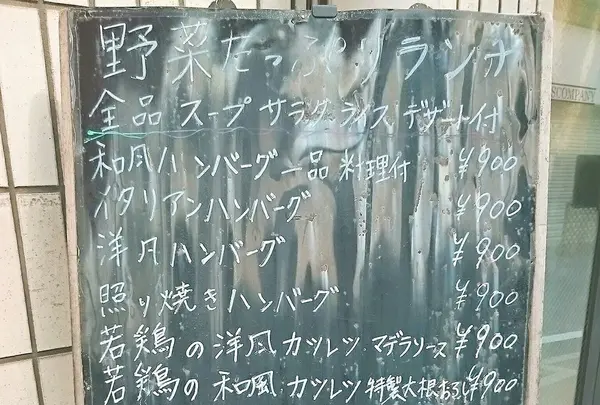 野菜たっぷりランチ
全品 スープ サラダ ライス デザート付
和風ハンバーグ 一品 料理付 ¥900
イタリアンハンバーグ ¥900
洋風ハンバーグ ¥900
照り焼きハンバーグ ¥900
若鶏の洋風カツレツ マデラソース ¥900
若鶏の和風カツレツ 特製大根おろし ¥900
SCOMPANY